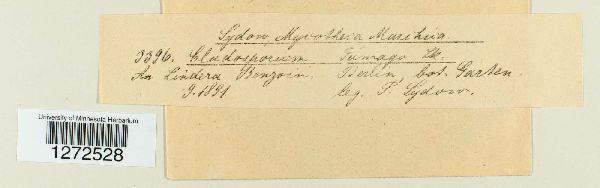 Sydow, Mycotheca Marchica.
3396. Cladosporium Fumago Lk.
An Lindera Benzoin. Berlin, bot. Garten.
9.1891. leg. P. Sydow.
University of Minnesota Herbarium
1272528